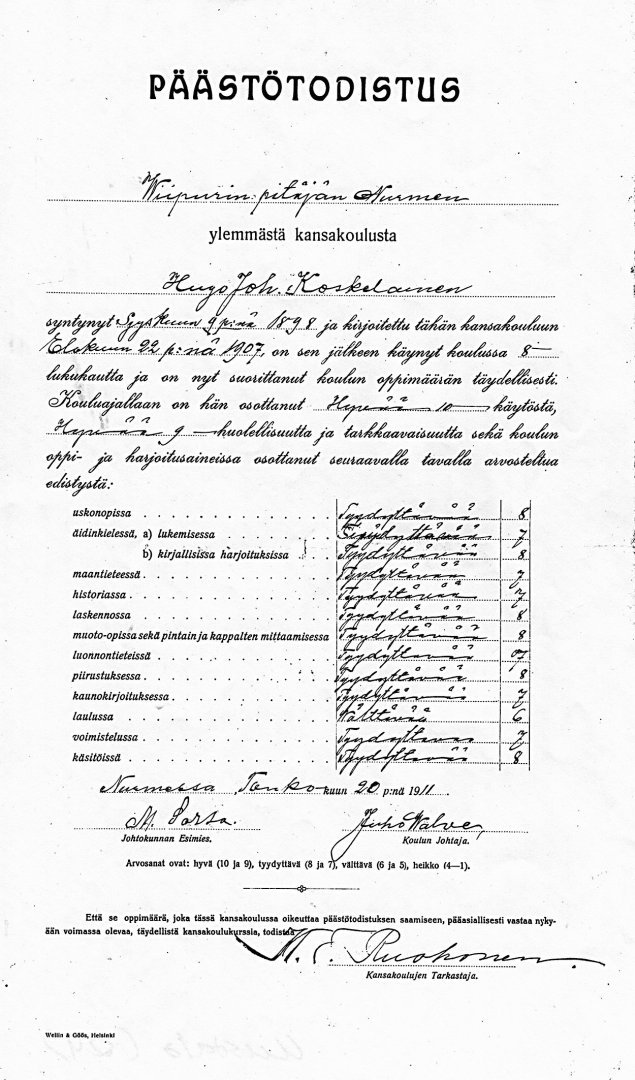 PÄÄSTÖTODISTUS
Wiipurin pitäjän Nurmen
ylemmästä kansakoulusta
Hugo Joh. Koskelainen
syntynyt Syyskuun 9 p:nä 1898 ja kirjoitettu tähän kansakouluun
Elokuun 22 p:nä 1907, on sen jälkeen käynyt koulussa 8
lukukautta ja on nyt suorittanut koulun oppimäärän täydellisesti.
Kouluajallaan on hän osottanut Hyvää 10 käytöstä,
Hyvää 9 huolellisuutta ja tarkkaavaisuutta sekä koulun
oppi- ja harjoitusaineissa osottanut seuraavalla tavalla arvosteltua
edistystä:
uskonopissa Tyydyttävää 8
äidinkielessä, a) lukemisessa Tyydyttävää 7
b) kirjallisissa harjoituksissa Tyydyttävää 8
maantieteessä Tyydyttävää 7
historiassa Tyydyttävää 7
laskennossa Tyydyttävää 8
muoto-opissa sekä pintain ja kappalten mittaamisessa Tyydyttävää 8
luonnontieteissä Tyydyttävää 7
piirustuksessa Tyydyttävää 8
kaunokirjoituksessa Tyydyttävää 7
laulussa Wälttävää 6
voimistelussa Tyydyttävää 7
käsitöissä Tyydyttävää 8
Nurmessa, Toukokuun 20 p:nä 1911
M. Sorsa. Juho Walve,
Johtokunnan Esimies. Koulun Johtaja.
Arvosanat ovat: hyvä (10 ja 9), tyydyttävä (8 ja 7), välttävä (6 ja 5), heikko (4—1).
Että se oppimäärä, joka tässä kansakoulussa oikeuttaa päästötodistuksen saamiseen, pääasiallisesti vastaa nyky-
ään voimassa olevaa, täydellistä kansakoulukurssia, todistaa
K. E. Ruohonen
Kansakoulujen Tarkastaja.
Weilin & Göös, Helsinki